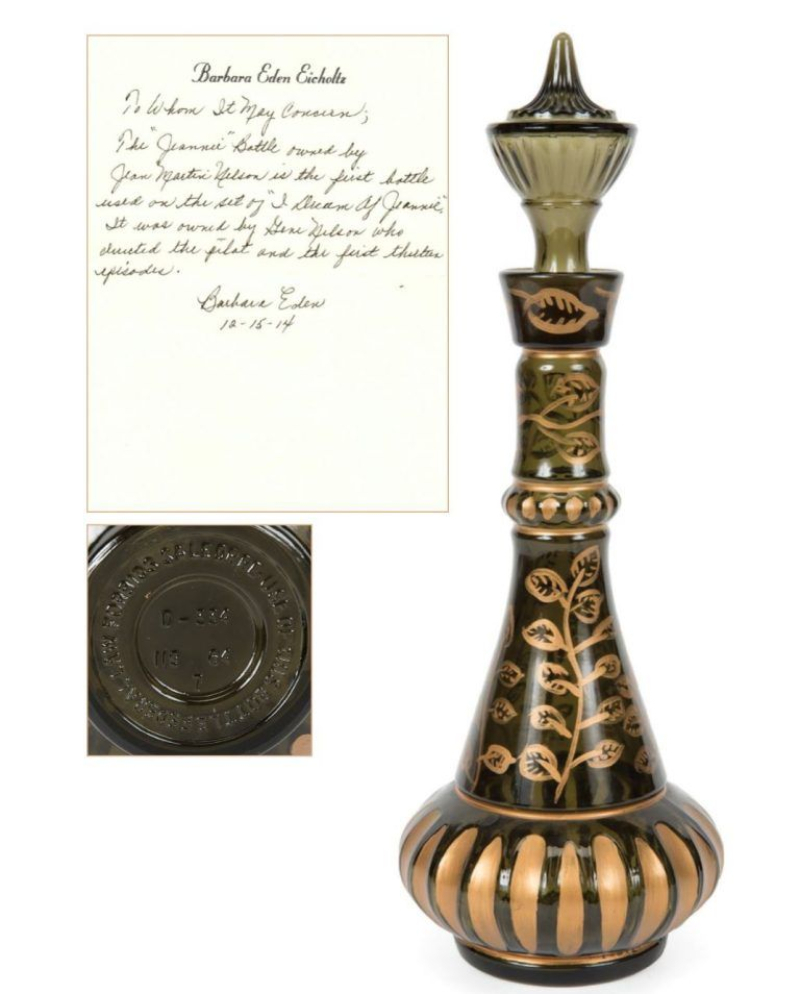 Barbara Eden Eicholtz
To Whom It May Concern;
The "Jeannie" Bottle owned by
Jean Martin Nelson is the first bottle
used on the set of "I Dream Of Jeannie".
It was owned by Gene Nelson who
directed the pilot and the first thirteen
episodes.
Barbara Eden
12-15-14
FEDERAL LAW FORBIDS SALE OR RE-USE OF THIS BOTTLE
D-334
64
7